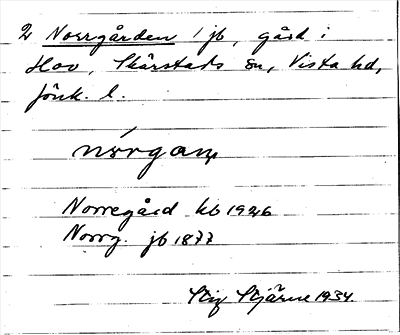 2 Norrgården 1 jb, gård i
Hov, Skärstads sn, Vista hd,
Jönk. l.
Norregård kb 1926
Norrg. jb 1877
Stig Stjärne 1934.